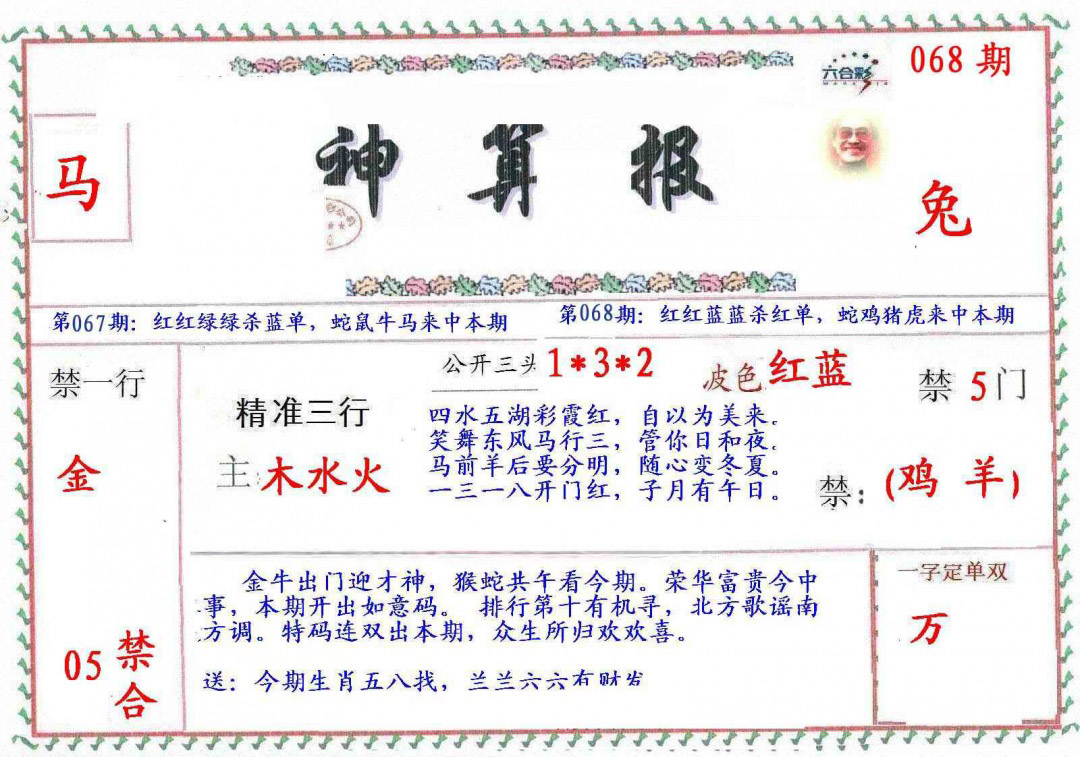 六合彩
068 期
马
神算报
兔
第067期：红红绿绿杀蓝单，蛇鼠牛马来中本期
第068期：红红蓝蓝杀红单，蛇鸡猪虎来中本期
禁一行
金
05 禁合
精准三行
主：木水火
公开三头 1*3*2
波色 红蓝
四水五湖彩霞红，自以为美来。
笑舞东风马行三，管你日和夜。
马前羊后要分明，随心变冬夏。
一三一八开门红，子月有午日。
禁 5 门
禁：(鸡 羊)
金牛出门迎才神，猴蛇共午看今期。荣华富贵今中
事，本期开出如意码。 排行第十有机寻，北方歌谣南
方调。特码连双出本期，众生所归欢欢喜。
送：今期生肖五八找，兰兰六六有财发
一字定单双
万